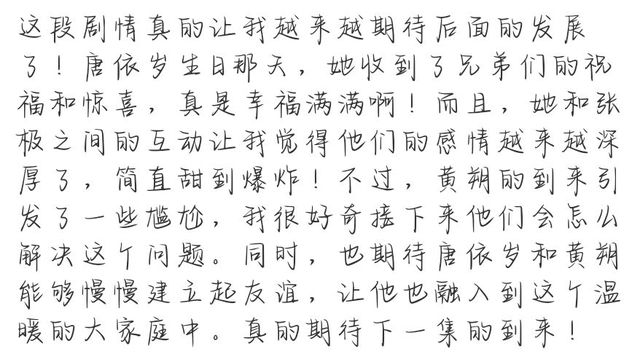 这段剧情真的让我越来越期待后面的发展
了！唐依岁生日那天，她收到了兄弟们的祝
福和惊喜，真是幸福满满啊！而且，她和张
极之间的互动让我觉得他们的感情越来越深
厚了，简直甜到爆炸！不过，黄朔的到来引
发了一些尴尬，我很好奇接下来他们会怎么
解决这个问题。同时，也期待唐依岁和黄朔
能够慢慢建立起友谊，让他也融入到这个温
暖的大家庭中。真的期待下一集的到来！